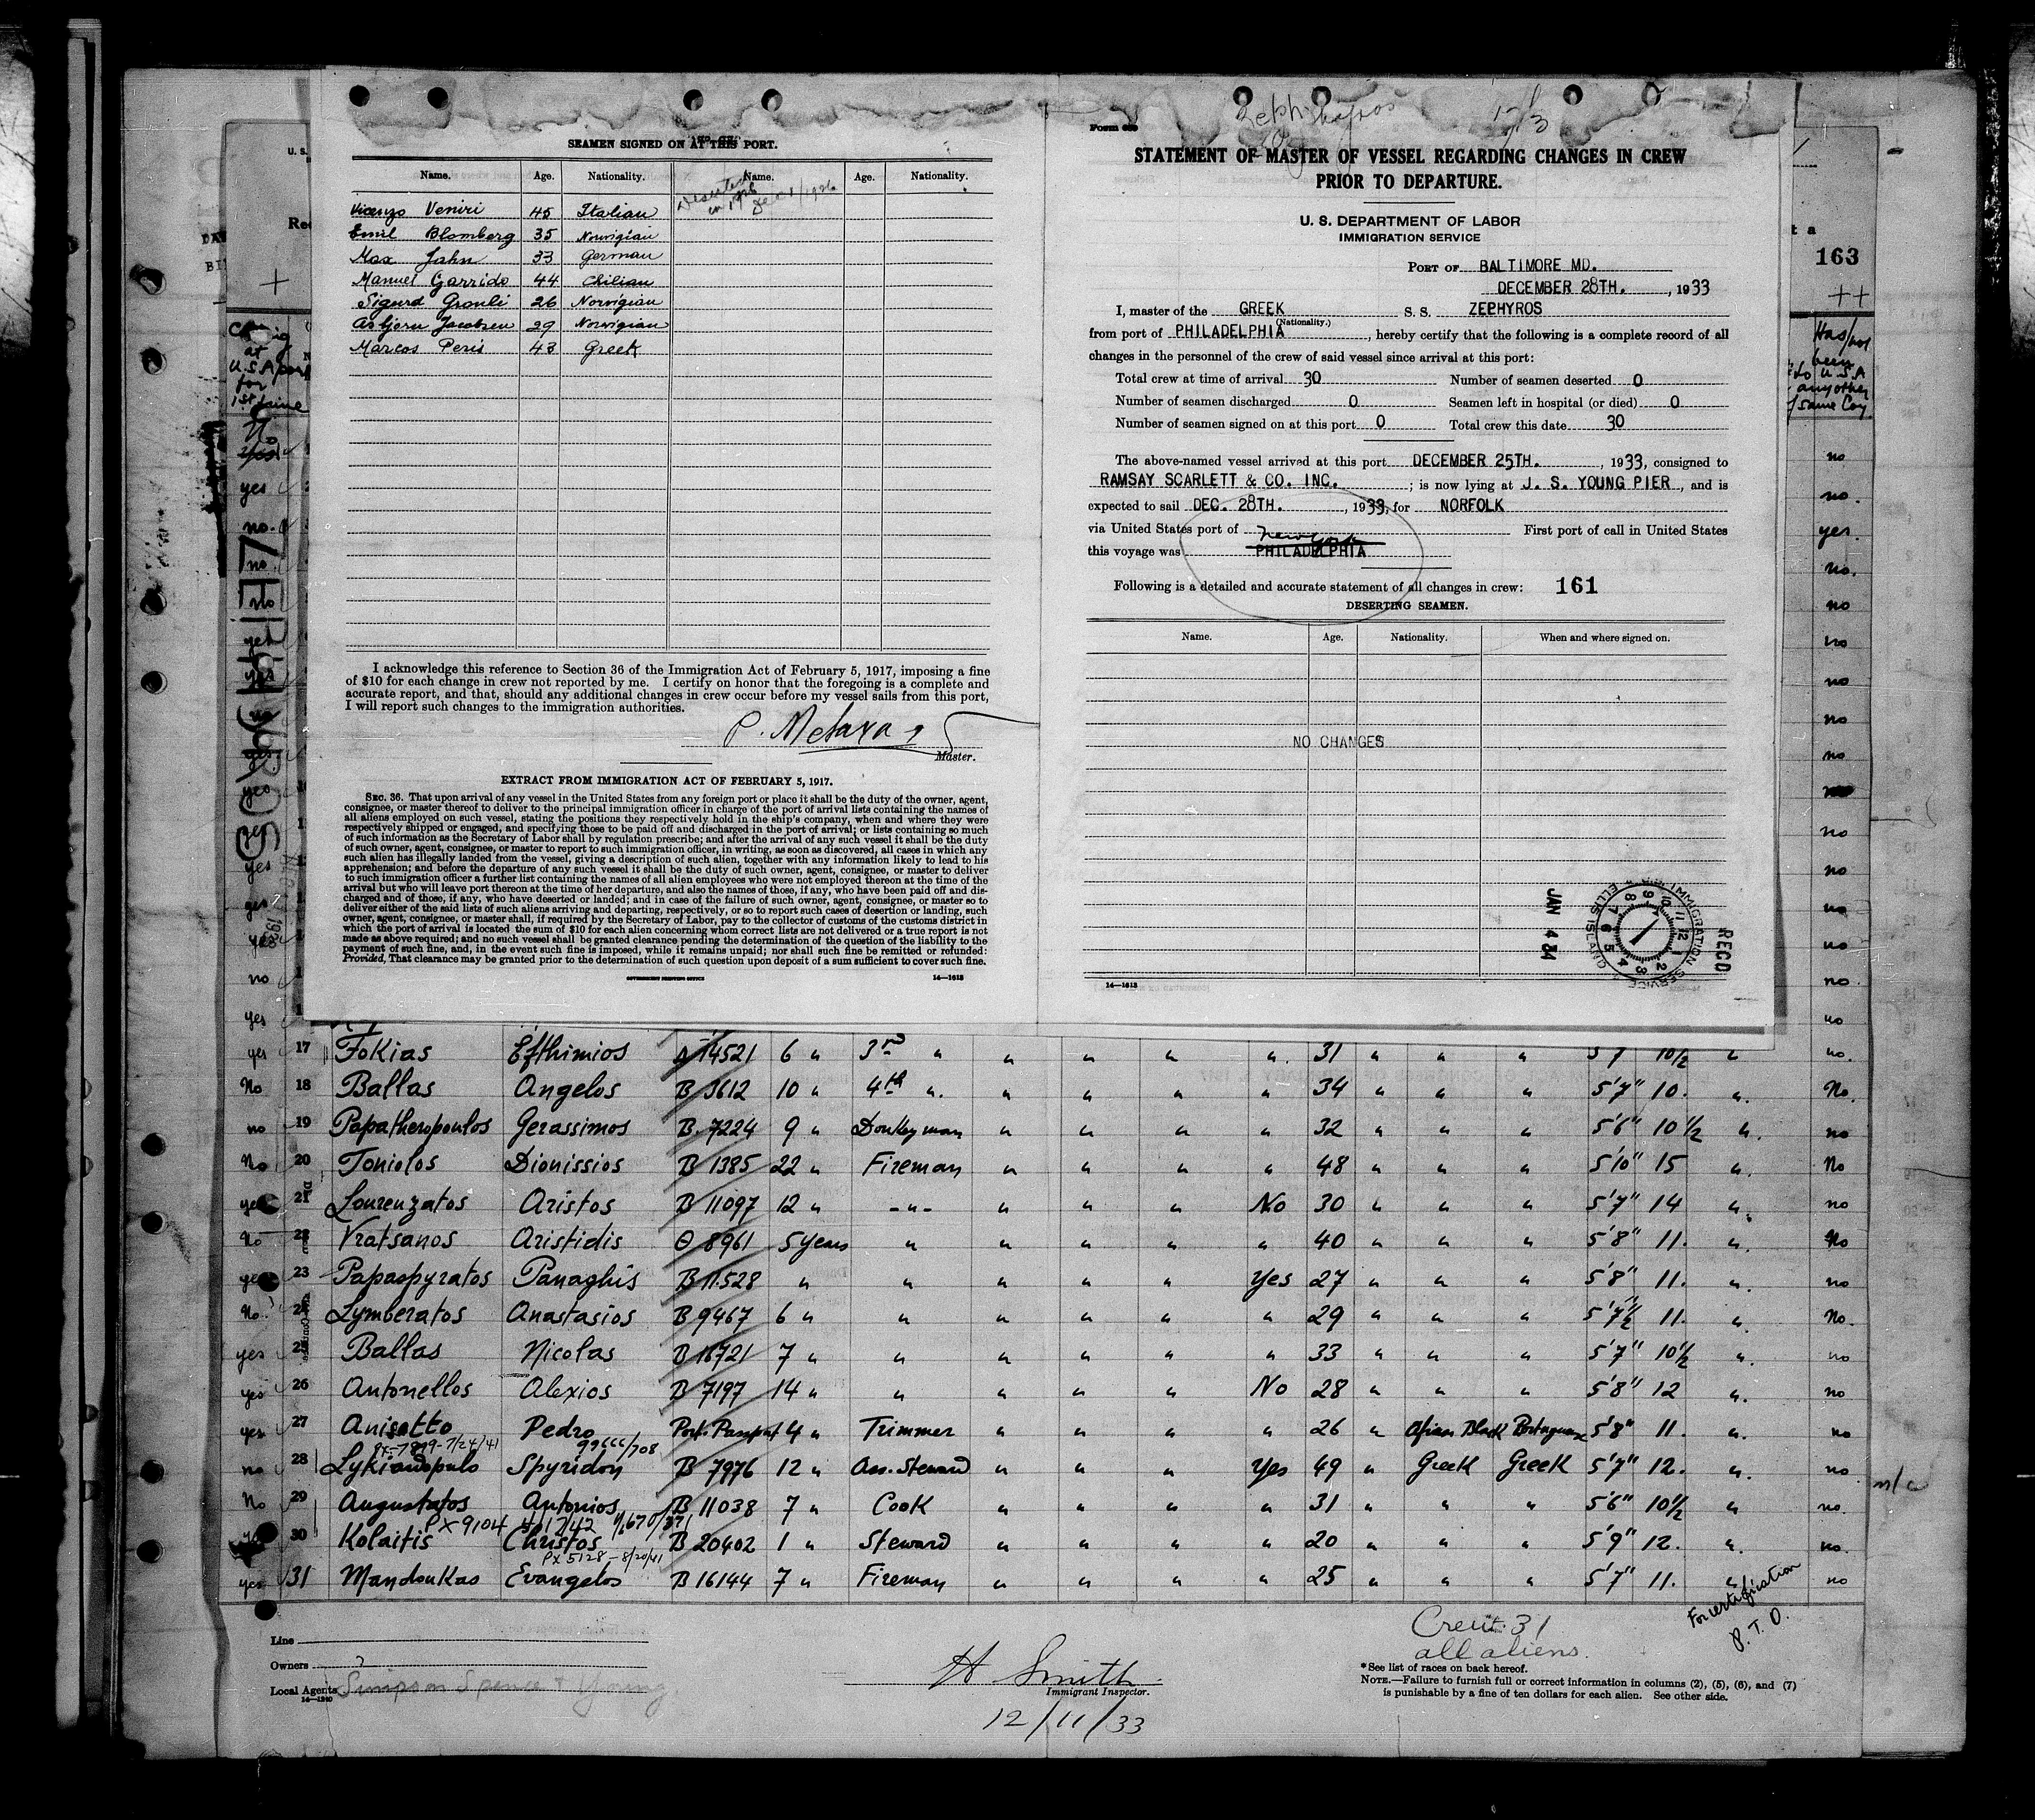 SEAMEN SIGNED ON AT THIS PORT.
Name. Age. Nationality. Name. Age. Nationality.
Deserted
in 1926 Dec 1/1926
Vicenzo Veniri 45 Italian
Emil Blomberg 35 Norwigian
Max Jahn 33 German
Manuel Garrido 44 Chilian
Sigurd Gronli 26 Norwigian
Asbjorn Jacobsen 29 Norwigian
Marcos Peris 43 Greek
I acknowledge this reference to Section 36 of the Immigration Act of February 5, 1917, imposing a fine
of $10 for each change in crew not reported by me. I certify on honor that the foregoing is a complete and
accurate report, and that, should any additional changes in crew occur before my vessel sails from this port,
I will report such changes to the immigration authorities.
P. Metaxa
Master.
EXTRACT FROM IMMIGRATION ACT OF FEBRUARY 5, 1917.
SEC. 36. That upon arrival of any vessel in the United States from any foreign port or place it shall be the duty of the owner, agent,
consignee, or master thereof to deliver to the principal immigration officer in charge of the port of arrival lists containing the names of
all aliens employed on such vessel, stating the positions they respectively hold in the ship's company, when and where they were
respectively shipped or engaged, and specifying those to be paid off and discharged in the port of arrival; or lists containing so much
of such information as the Secretary of Labor shall by regulation prescribe; and after the arrival of any such vessel it shall be the duty
of such owner, agent, consignee, or master to report to such immigration officer, in writing, as soon as discovered, all cases in which any
such alien has illegally landed from the vessel, giving a description of such alien, together with any information likely to lead to his
apprehension; and before the departure of any such vessel it shall be the duty of such owner, agent, consignee, or master to deliver
to such immigration officer a further list containing the names of all alien employees who were not employed thereon at the time of the
arrival but who will leave port thereon at the time of her departure, and also the names of those, if any, who have been paid off and dis-
charged and of those, if any, who have deserted or landed; and in case of the failure of such owner, agent, consignee, or master so to
deliver either of the said lists of such aliens arriving and departing, respectively, or so to report such cases of desertion or landing, such
owner, agent, consignee, or master shall, if required by the Secretary of Labor, pay to the collector of customs of the customs district in
which the port of arrival is located the sum of $10 for each alien concerning whom correct lists are not delivered or a true report is not
made as above required; and no such vessel shall be granted clearance pending the determination of the question of the liability to the
payment of such fine, and, in the event such fine is imposed, while it remains unpaid; nor shall such fine be remitted or refunded:
Provided, That clearance may be granted prior to the determination of such question upon deposit of a sum sufficient to cover such fine.
GOVERNMENT PRINTING OFFICE 14—1613
STATEMENT OF MASTER OF VESSEL REGARDING CHANGES IN CREW
PRIOR TO DEPARTURE.
U. S. DEPARTMENT OF LABOR
IMMIGRATION SERVICE
PORT OF BALTIMORE MD.
DECEMBER 28TH. , 1933
I, master of the GREEK S. S. ZEPHYROS
(Nationality.)
from port of PHILADELPHIA , hereby certify that the following is a complete record of all
changes in the personnel of the crew of said vessel since arrival at this port:
Total crew at time of arrival 30 Number of seamen deserted 0
Number of seamen discharged 0 Seamen left in hospital (or died) 0
Number of seamen signed on at this port 0 Total crew this date 30
The above-named vessel arrived at this port DECEMBER 25TH. , 1933, consigned to
RAMSAY SCARLETT & CO. INC. ; is now lying at J. S. YOUNG PIER , and is
expected to sail DEC. 28TH. , 1933, for NORFOLK
via United States port of First port of call in United States
New York
this voyage was PHILADELPHIA
Following is a detailed and accurate statement of all changes in crew: 161
DESERTING SEAMEN.
Name. Age. Nationality. When and where signed on.
NO CHANGES
RECD
IMMIGRATION SERVICE
ELLIS ISLAND
JAN 4 84
14—1613
163
++
Has/not
been
to USA
any other
of same Coy
yes 17 Fokias Efthimios 14521 6 " 3rd " " " " " 31 " " " 5'7 10 1/2 " no.
No 18 Ballas Angelos B 3612 10 " 4th " " " " " 34 " " " 5'7" 10. " No.
no 19 Papatheropoulos Gerassimos B. 7224 9 " Donkeyman " " " " 32 " " " 5'6" 10 1/2 " no
No 20 Toniolos Dionissios B 1385 22 " Fireman " " " " 48 " " " 5'10" 15 " No
yes 21 Lourenzatos Aristos B 11097 12 " -"- " " " No 30 " " " 5'7" 14 " no
No 22 Vratsanos Aristidis Θ 8961 5 years " " " " " 40 " " " 5'8" 11. " No
yes 23 Papaspyratos Panaghis B 11.528 " " " " " Yes 27 " " " 5'8" 11. " no
No. 24 Lymberatos Anastasios B 9467 6 " " " " " " 29 " " " 5'7 1/2" 11. " No.
yes 25 Ballas Nicolas B 16721 7 " " " " " " 33 " " " 5'7" 10 1/2 " no
yes 26 Antonellos Alexios B 7197 14 " " " " " No 28 " " " 5'8" 12 " no
yes 27 Anisotto Pedro Port. Passport 4 " Trimmer " " " " 26 " African Black Portuguese 5'8" 11. " no
PX-7899-7/24/41 99666/708
no 28 Lykiardopulo Spyridon B 7976 12 " Ass. Steward " " " Yes 49 " Greek Greek 5'7" 12. " no
No 29 Augustatos Antonios B 11038 7 " Cook " " " " 31 " " " 5'6" 10 1/2 " no.
PX 9104 4/17/42
30 Kolaitis Christos B 20402 1 " Steward " " " " 20 " " " 5'9" 12. " no.
PX 5128-8/20/41
yes 31 Mandoukas Evangelos B 16144 7 " Fireman " " " " 25 " " " 5'7" 11. " no
For certification
P. T. O.
Crew: 31
all aliens.
Line
Owners
Local Agents Simpson Spence & Young
14—1240
H Smith
Immigrant Inspector.
12/11/33
*See list of races on back hereof.
NOTE.—Failure to furnish full or correct information in columns (2), (5), (6), and (7)
is punishable by a fine of ten dollars for each alien. See other side.